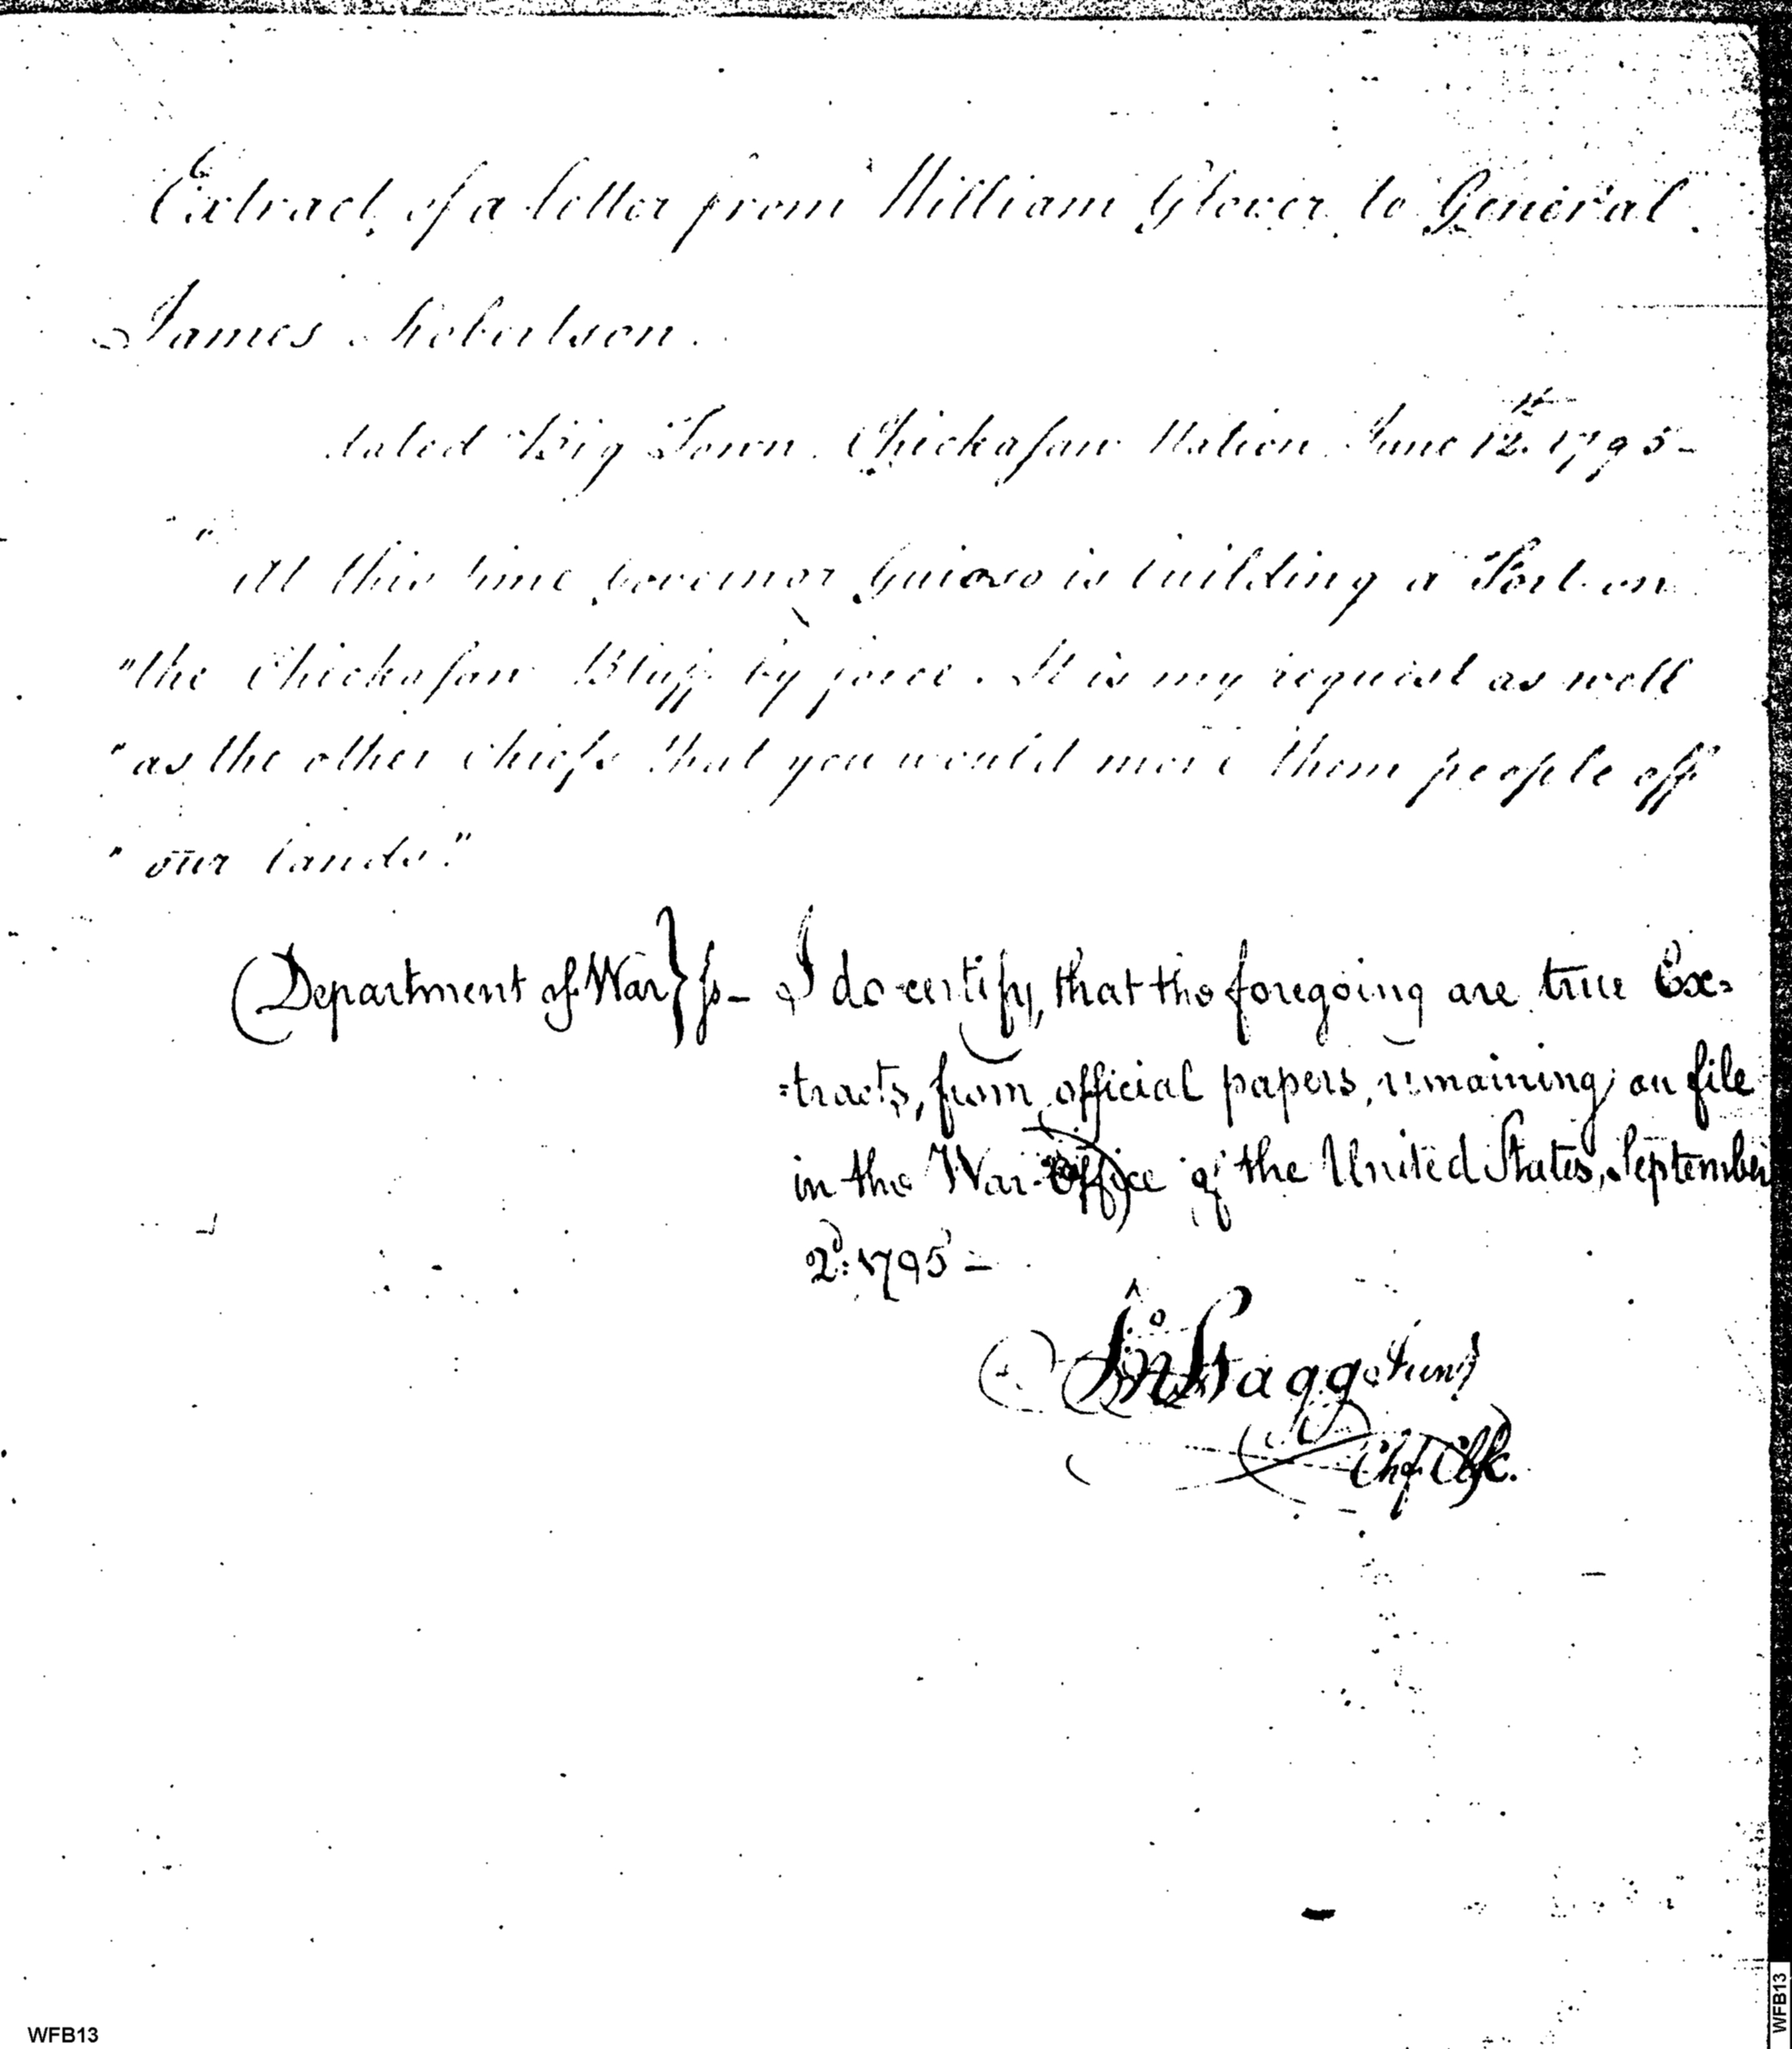 Extract of a letter from William Glover to General
James Robertson.
dated Big Town Chickasaw Nation June 12th 1795-
"At this time Governor Guioso is building a Fort on
"the Chickasaw Bluff by force. It is my request as well
"as the other chiefs that you would move them people off
"our lands."
Department of War } ss- I do certify, that the foregoing are true Ex=
=tracts, from official papers, remaining on file
in the War-Office of the United States, September
2d: 1795-
Jno Stagg Junr
Chf Clk.
WFB13
WFB13